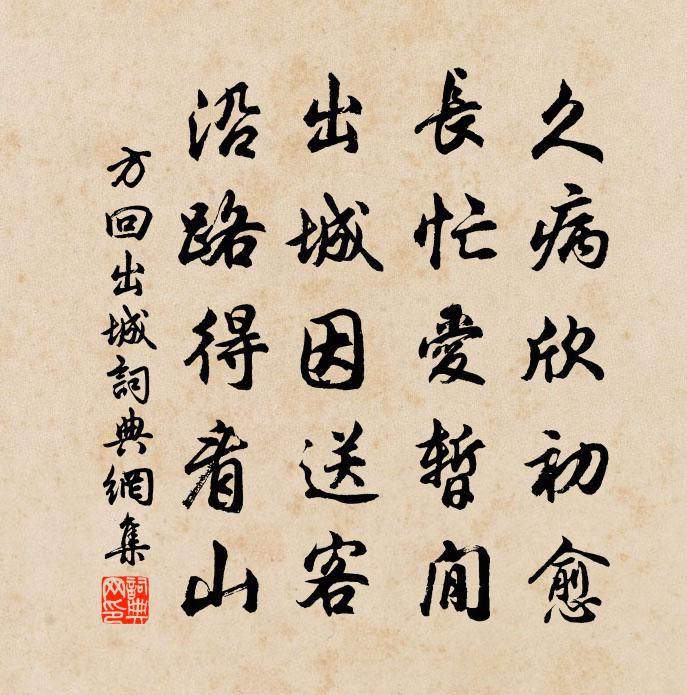 久病欣初愈
長忙愛暫閒
出城因送客
沿路得看山
方回出城詞典網集
詞典網印